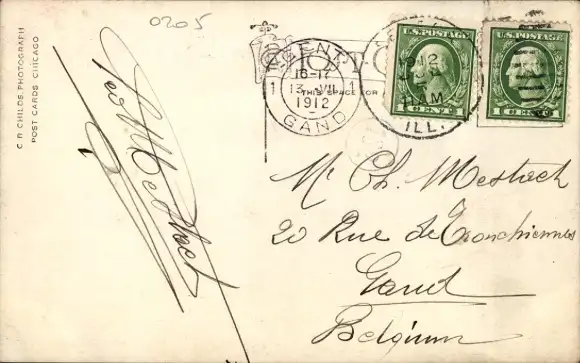 0205
C.R. CHILDS. PHOTOGRAPH
POST CARDS CHICAGO
GENT
16-17
1 13. VII 1
1912
GAND
THIS SPACE FOR
12
M
ILL.
U.S. POSTAGE
1 CENT 1
U.S. POSTAGE
1 CENT
Mestach
Mr Ch. Mestach
20 Rue de Tronchiennes
Gand
Belgium